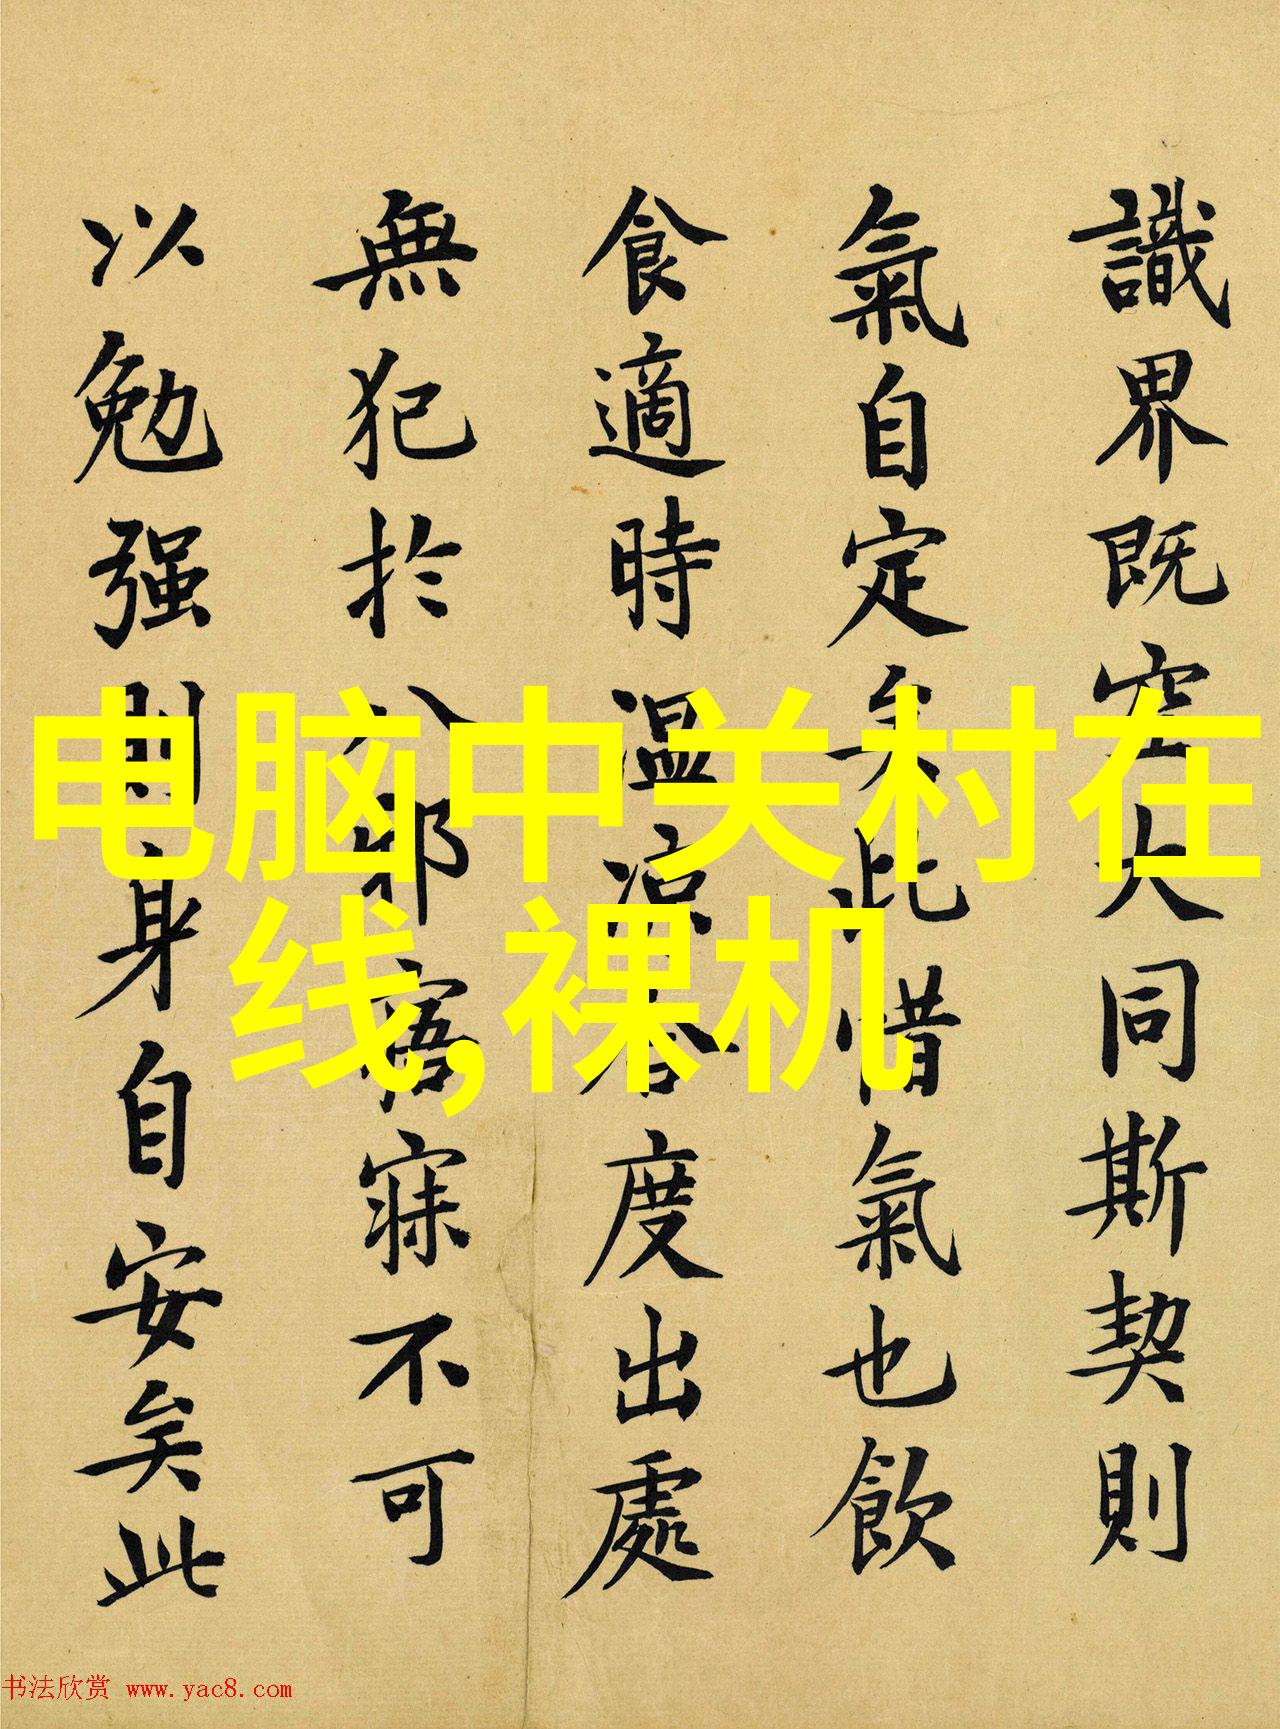 識界既空大同斯契則
氣自定矣此惜氣也飲
食適時温凉合度出處
無犯於八邪寤寐不可
以勉强則身自安矣此
电脑中关村在
线,裸机
书法欣赏 www.yac8.com